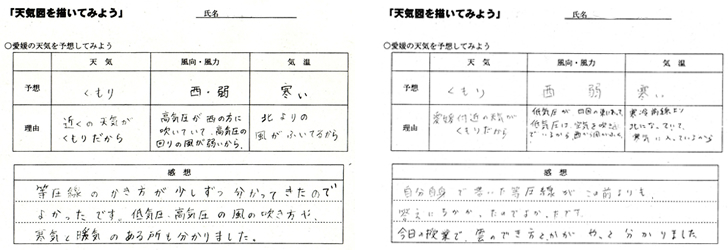 「天気図を描いてみよう」
氏名
○愛媛の天気を予想してみよう
天気 風向・風力 気温
予想 くもり 西・弱 寒い
理由
近くの天気が
くもりだから
高気圧が西の方に
吹いていて、高気圧の
回りの風が弱いから。
北よりの
風がふいてるから
感想
等圧線のかき方が少しずつ分かってきたので
よかったです。低気圧、高気圧の風の吹き方や、
寒気と暖気のある所も分かりました。
「天気図を描いてみよう」
氏名
○愛媛の天気を予想してみよう
天気 風向・風力 気温
予想 くもり 西 弱 寒い
理由
愛媛付近の天気が
くもりだから
低気圧が四国の
低気圧は、空気を吹き
でいるから
寒冷前線より
北になっていて、
寒気に入っているから
感想
自分自身で書いた等圧線がこの前よりも、
答えにちかかったのでよかったです。
今日の授業で、雲のでき方とかがやっと分かりました